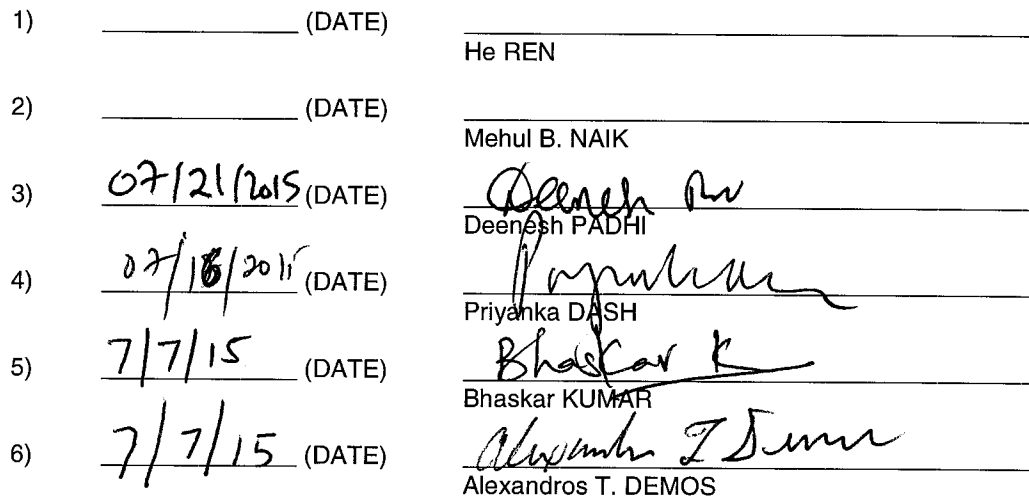 1) (DATE)
He REN
2) (DATE)
Mehul B. NAIK
3) 07/21/2015 (DATE) Deenesh
Deenesh PADHI
4) (DATE)
Priyanka DASH
5) 7/7/15 (DATE) Bhaskar K
Bhaskar KUMAR
6) 7/7/15 (DATE)
Alexandros T. DEMOS